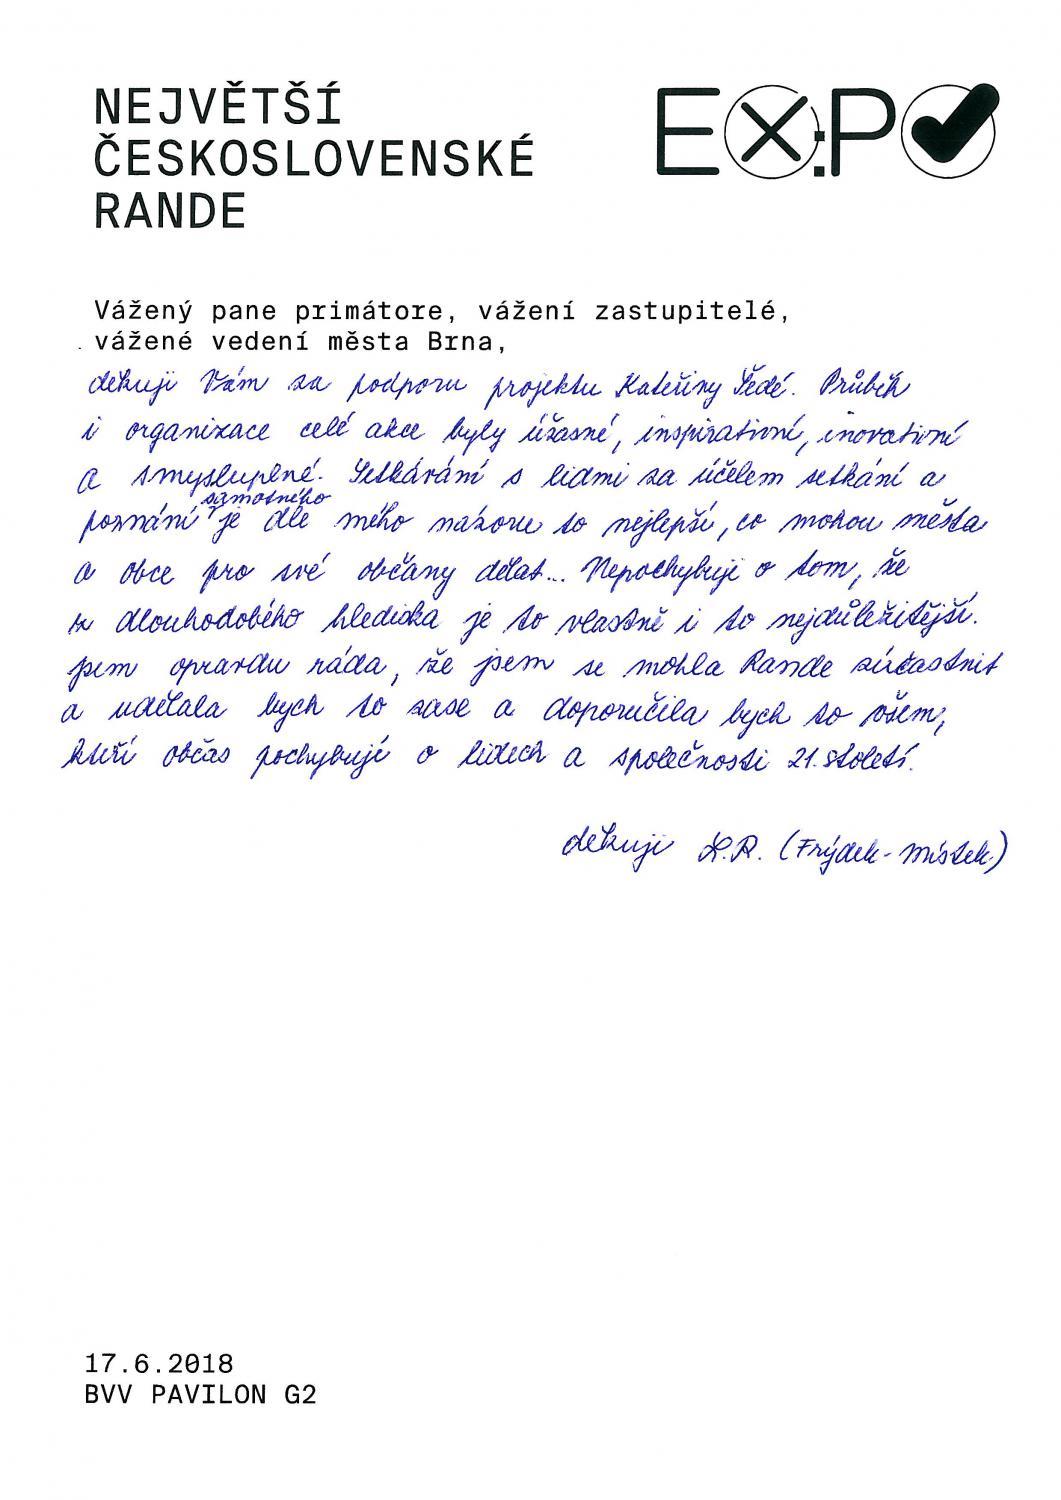 NEJVĚTŠÍ
ČESKOSLOVENSKÉ
RANDE
EX:PO
Vážený pane primátore, vážení zastupitelé,
vážené vedení města Brna,
děkuji Vám za podporu projektu Kateřiny Šedé. Průběh
i organizace celé akce byly úžasné, inspirativní, inovativní
a smysluplné. Setkávání s lidmi za účelem setkání a
samotného
poznání je dle mého názoru to nejlepší, co mohou města
a obce pro své občany dělat... Nepochybuji o tom, že
z dlouhodobého hlediska je to vlastně i to nejdůležitější.
Jsem opravdu ráda, že jsem se mohla Rande zúčastnit
a udělala bych to zase a doporučila bych to všem,
kteří občas pochybují o lidech a společnosti 21. století.
děkuji L.R. (Frýdek-Místek)
17.6.2018
BVV PAVILON G2